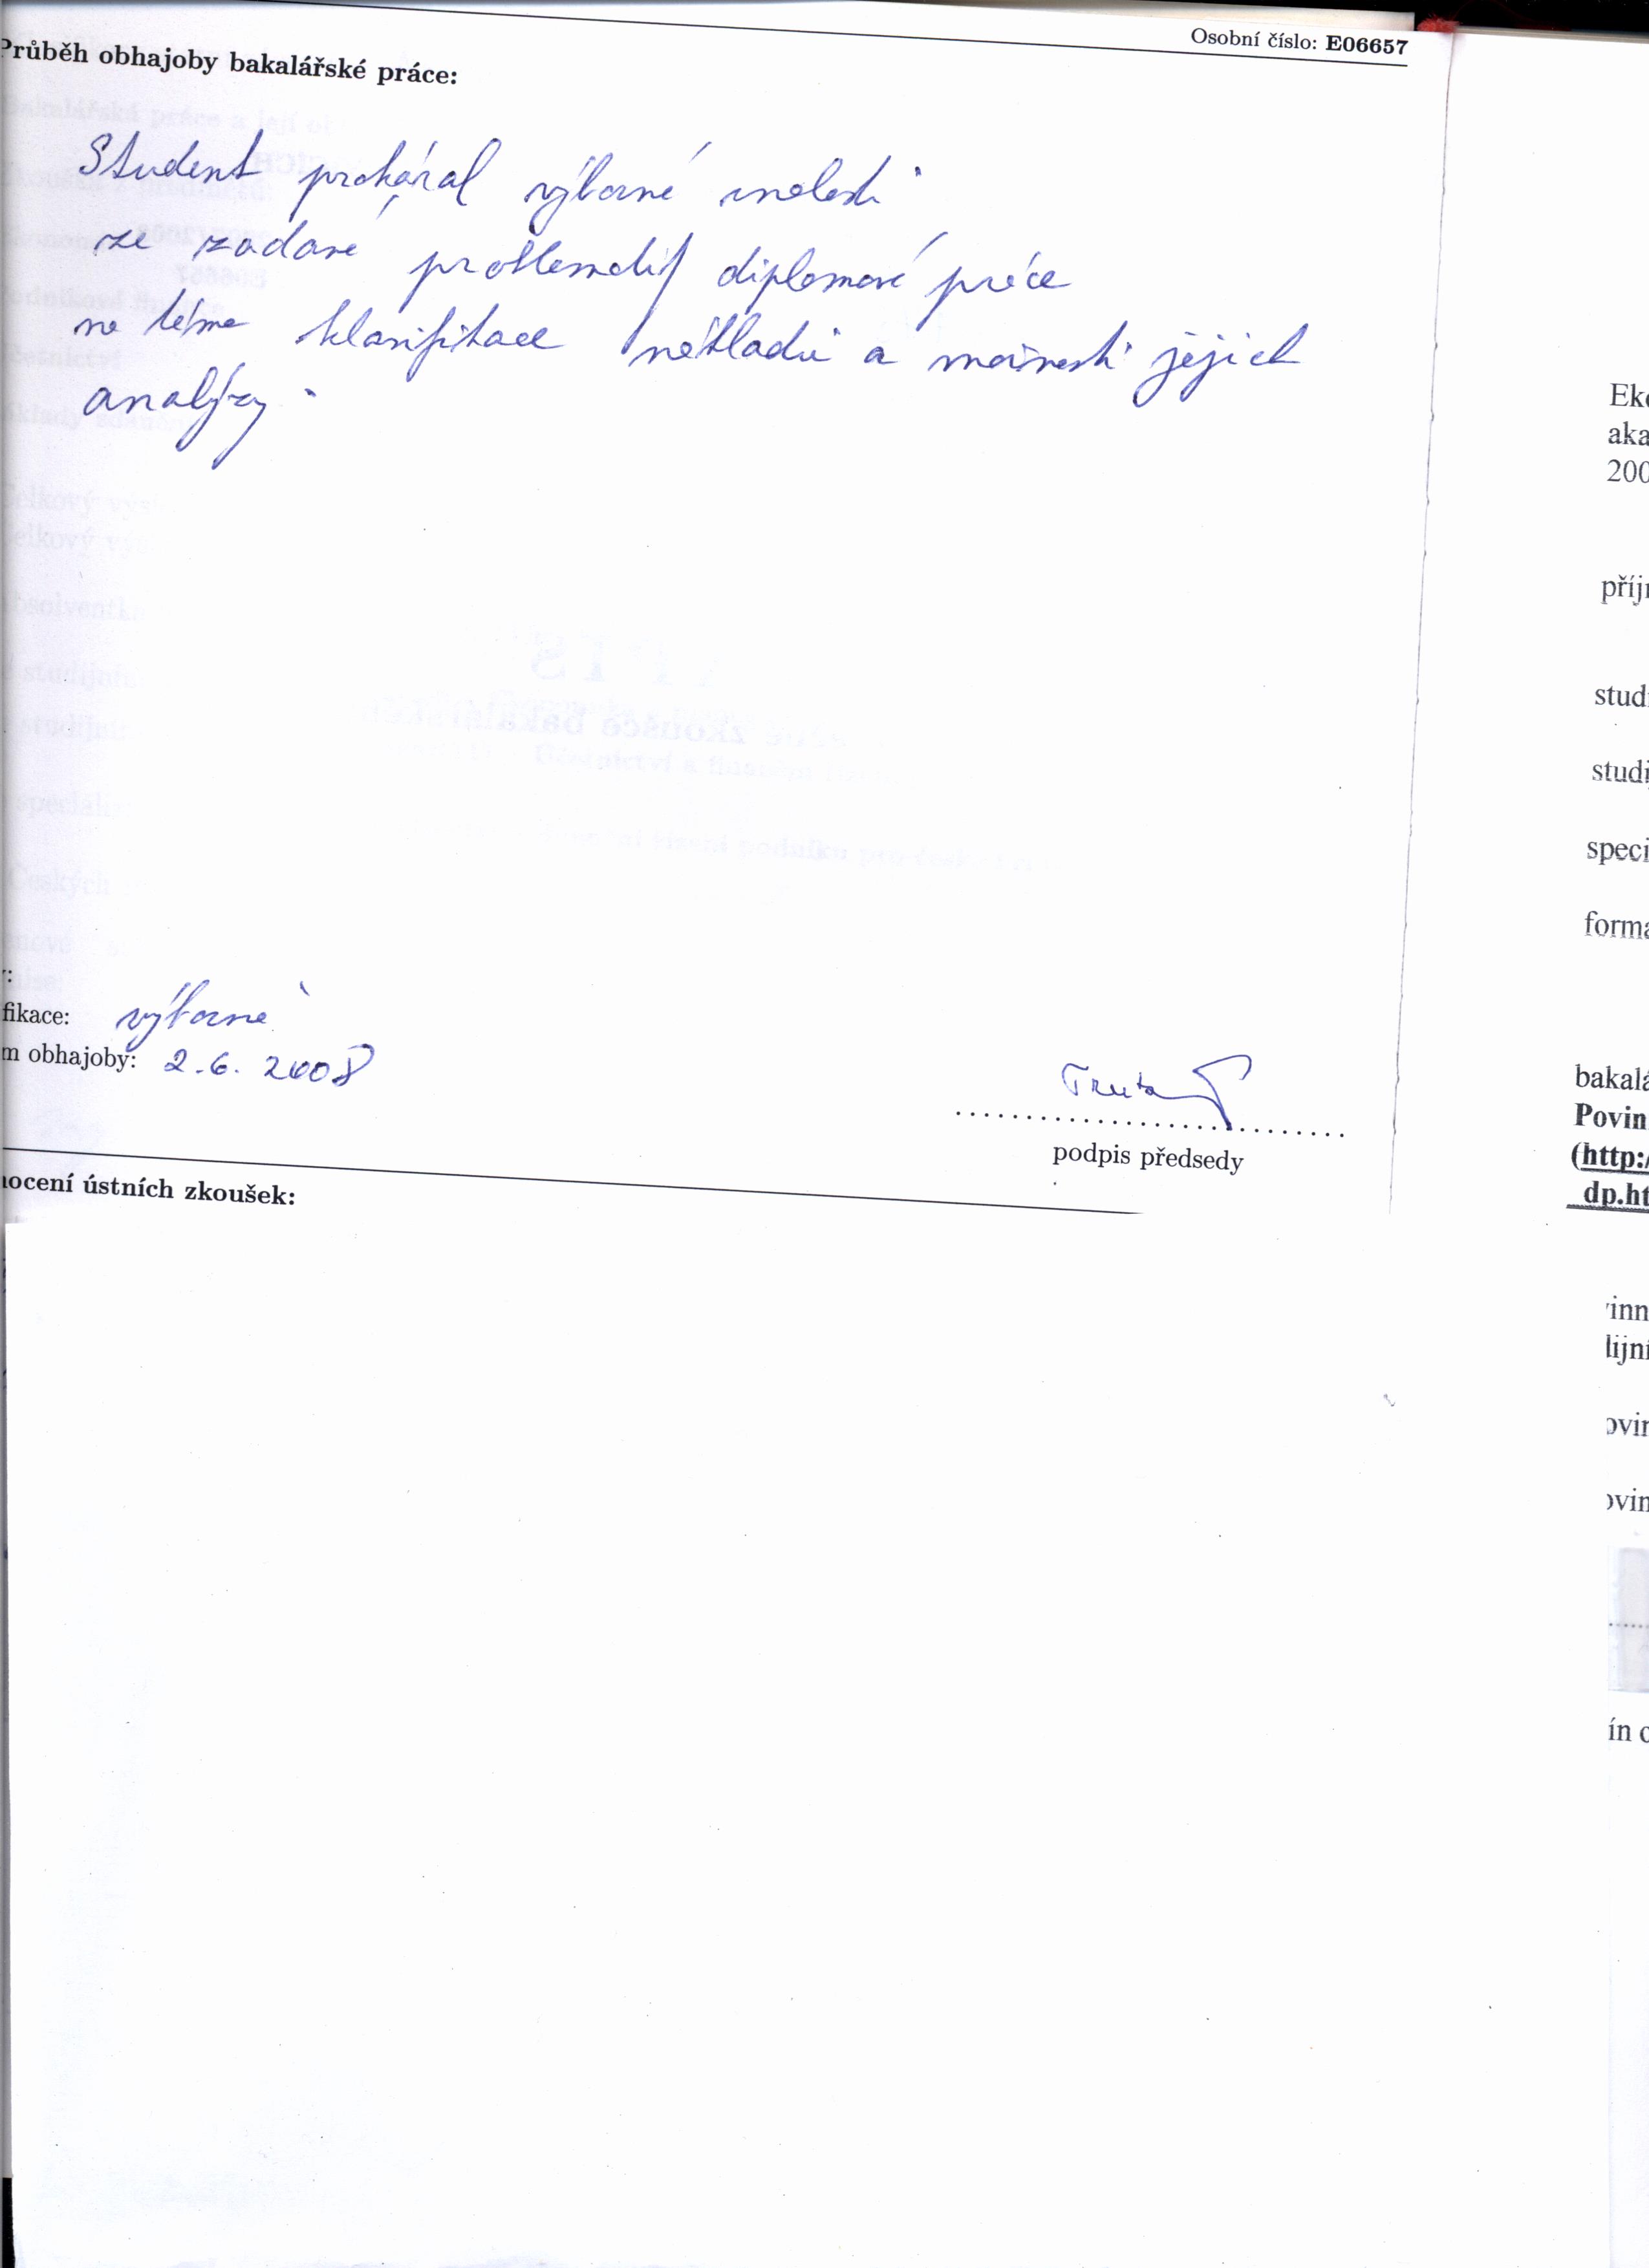 Osobní číslo: E06657
Průběh obhajoby bakalářské práce:
Student prokázal výborné znalosti
ze zadané problematiky diplomové práce
na téma klasifikace nákladů a možnosti jejich
analýzy.
fikace: výborně
m obhajoby: 2.6.2008
podpis předsedy
nocení ústních zkoušek:
Eko
aka
200
příjm
studi
studi
speci
forma
bakalá
Povin
(http:/
dp.ht
vinn
lijní
ovin
ovin
ín o